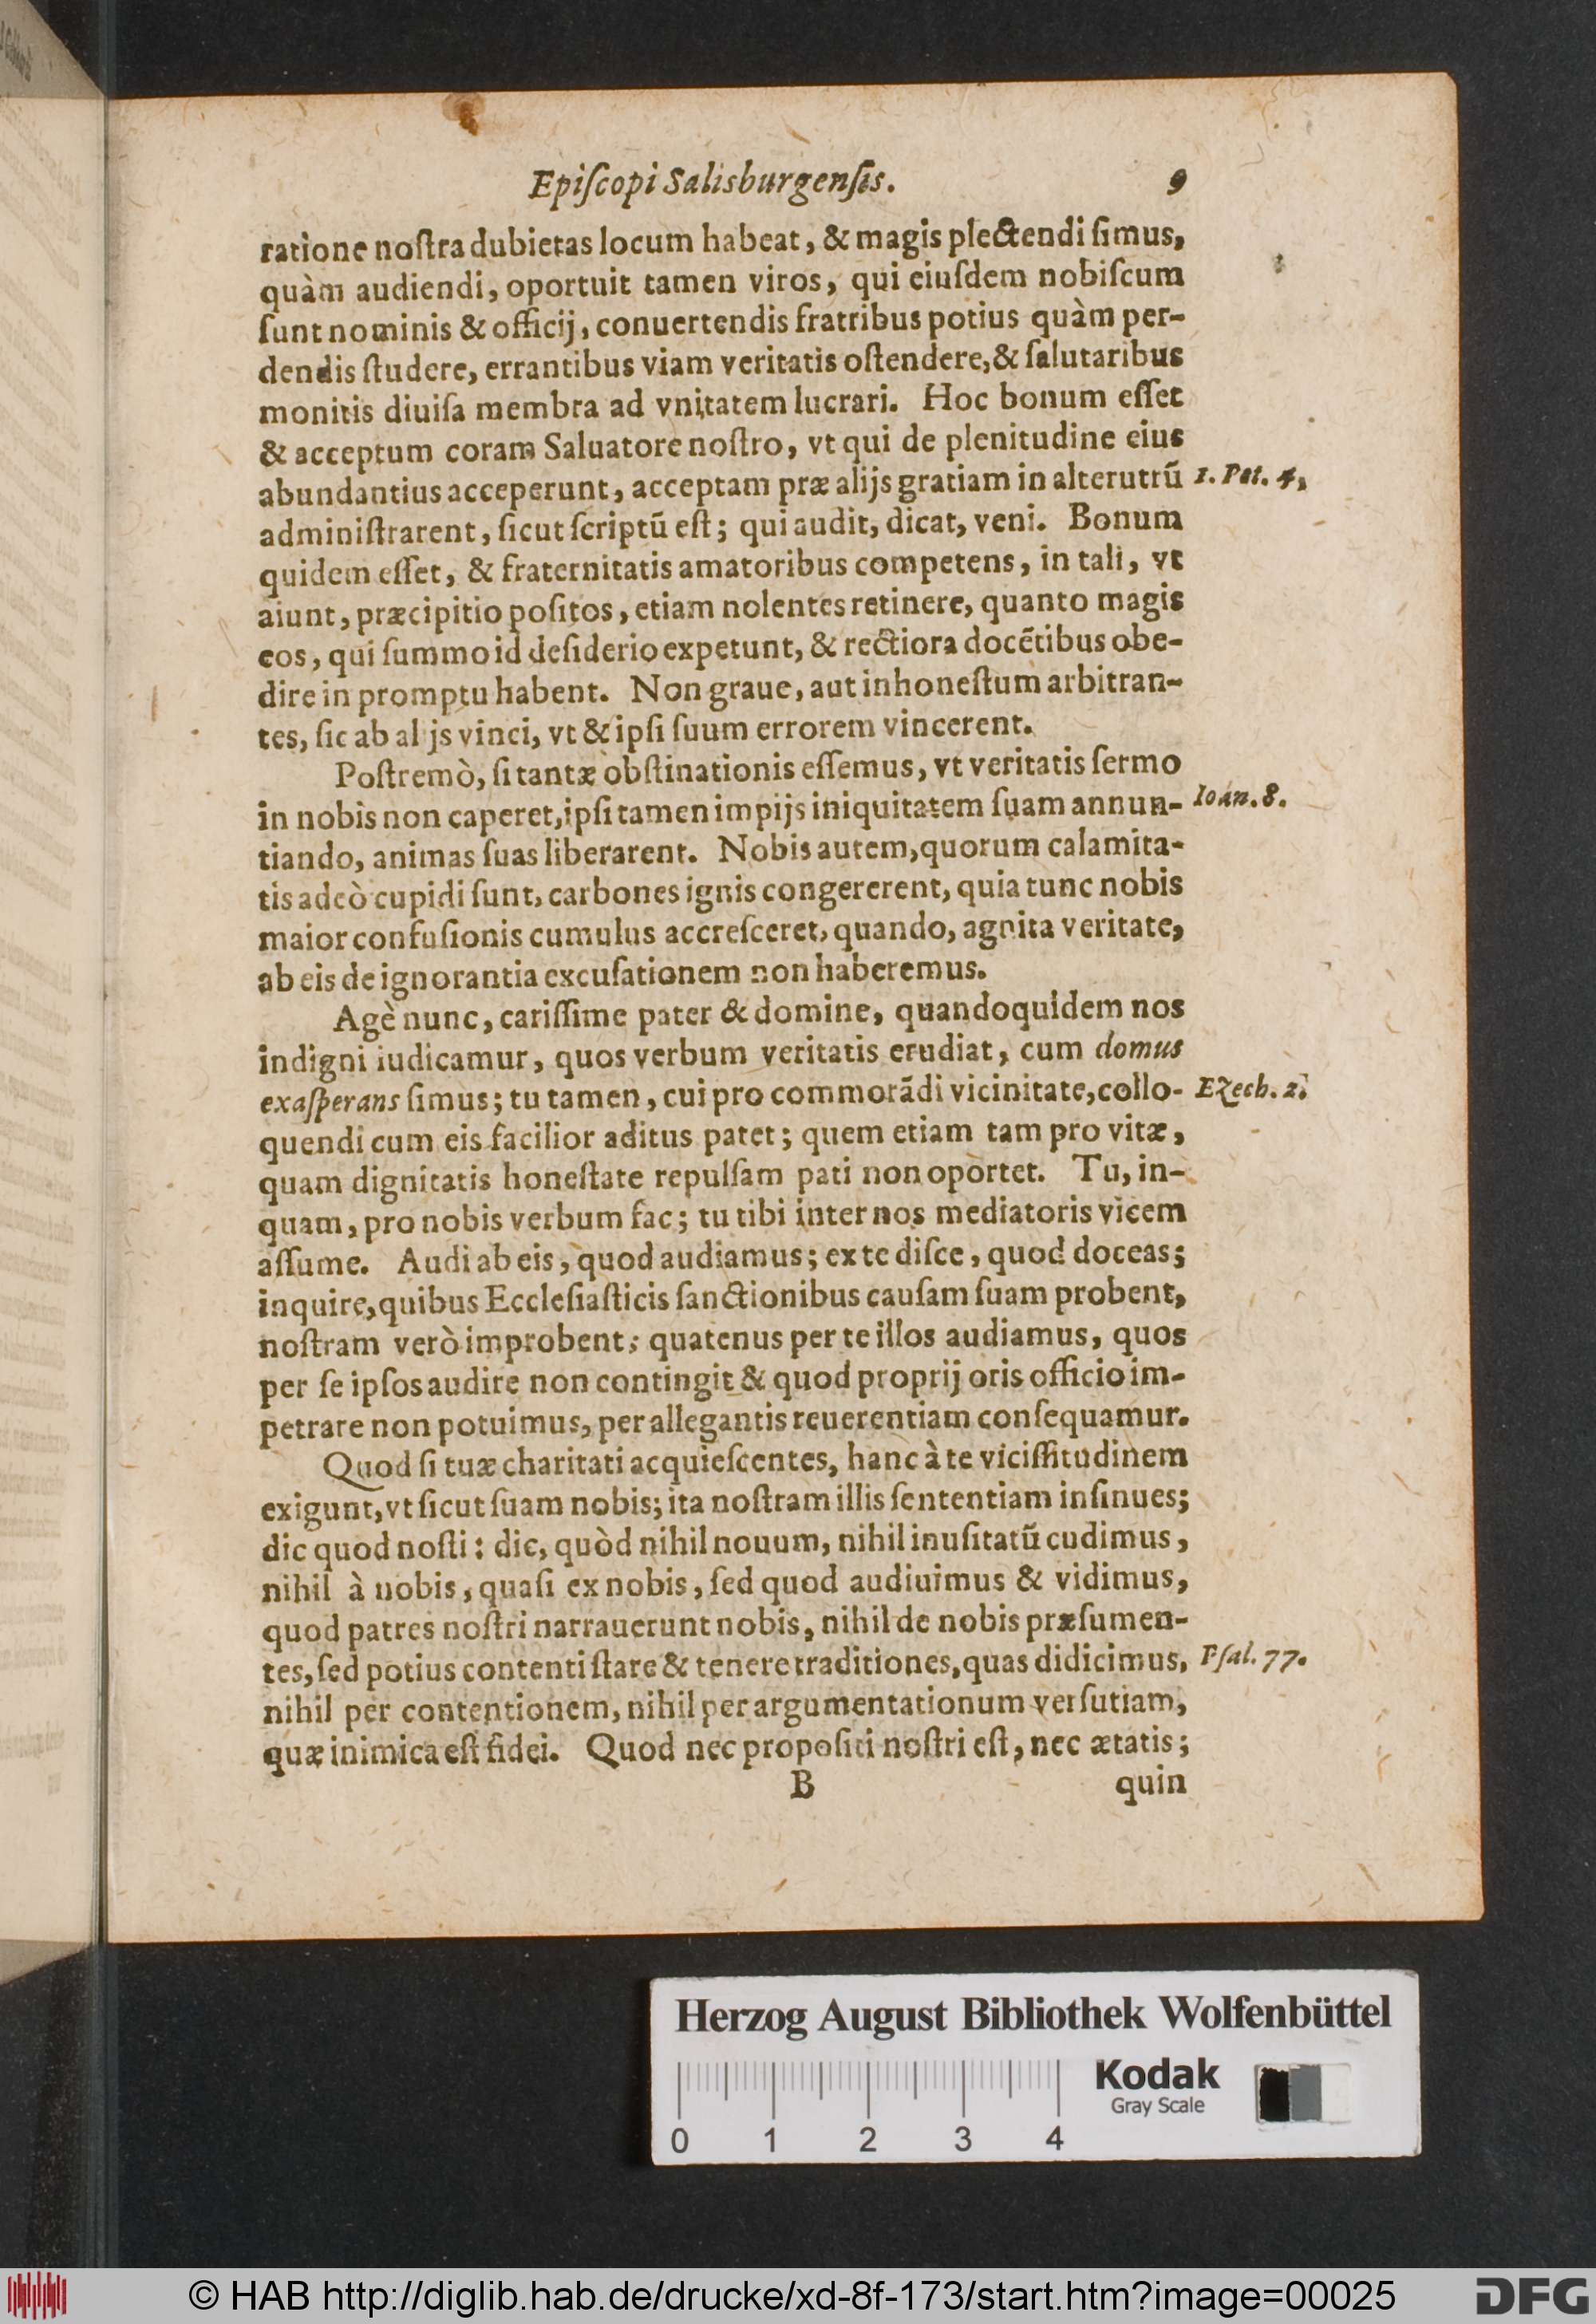 Epiſcopi Salisburgenſis. 9
ratione noſtra dubietas locum habeat, & magis plectendi ſimus,
quàm audiendi, oportuit tamen viros, qui eiuſdem nobiſcum
ſunt nominis & officij, conuertendis fratribus potius quàm per-
dendis ſtudere, errantibus viam veritatis oſtendere, & ſalutaribus
monitis diuiſa membra ad vnitatem lucrari. Hoc bonum eſſet
& acceptum coram Saluatore noſtro, vt qui de plenitudine eius
abundantius acceperunt, acceptam præ alijs gratiam in alterutrū 1. Pet. 4,
adminiſtrarent, ſicut ſcriptū eſt; qui audit, dicat, veni. Bonum
quidem eſſet, & fraternitatis amatoribus competens, in tali, vt
aiunt, præcipitio poſitos, etiam nolentes retinere, quanto magis
eos, qui ſummo id deſiderio expetunt, & rectiora docētibus obe-
dire in promptu habent. Non graue, aut inhoneſtum arbitran-
tes, ſic ab alijs vinci, vt & ipſi ſuum errorem vincerent.
Poſtremò, ſi tantæ obſtinationis eſſemus, vt veritatis ſermo
in nobis non caperet, ipſi tamen impijs iniquitatem ſuam annun- Ioan. 8.
tiando, animas ſuas liberarent. Nobis autem, quorum calamita-
tis adeò cupidi ſunt, carbones ignis congererent, quia tunc nobis
maior confuſionis cumulus accreſceret, quando, agnita veritate,
ab eis de ignorantia excuſationem non haberemus.
Agè nunc, cariſſime pater & domine, quandoquidem nos
indigni iudicamur, quos verbum veritatis erudiat, cum domus
exaſperans ſimus; tu tamen, cui pro commorādi vicinitate, collo- Ezech. 2.
quendi cum eis facilior aditus patet; quem etiam tam pro vitæ,
quam dignitatis honeſtate repulſam pati non oportet. Tu, in-
quam, pro nobis verbum fac; tu tibi inter nos mediatoris vicem
aſſume. Audi ab eis, quod audiamus; ex te diſce, quod doceas;
inquire, quibus Eccleſiaſticis ſanctionibus cauſam ſuam probent,
noſtram verò improbent; quatenus per te illos audiamus, quos
per ſe ipſos audire non contingit & quod proprij oris officio im-
petrare non potuimus, per allegantis reuerentiam conſequamur.
Quod ſi tuæ charitati acquieſcentes, hanc à te viciſſitudinem
exigunt, vt ſicut ſuam nobis; ita noſtram illis ſententiam inſinues;
dic quod noſti: dic, quòd nihil nouum, nihil inuſitatū cudimus,
nihil à nobis, quaſi ex nobis, ſed quod audiuimus & vidimus,
quod patres noſtri narrauerunt nobis, nihil de nobis præſumen-
tes, ſed potius contenti ſtare & tenere traditiones, quas didicimus, Pſal. 77.
nihil per contentionem, nihil per argumentationum verſutiam,
quæ inimica eſt fidei. Quod nec propoſiti noſtri eſt, nec ætatis;
B quin
Herzog August Bibliothek Wolfenbüttel
Kodak
Gray Scale
0 1 2 3 4
© HAB http://diglib.hab.de/drucke/xd-8f-173/start.htm?image=00025
DFG